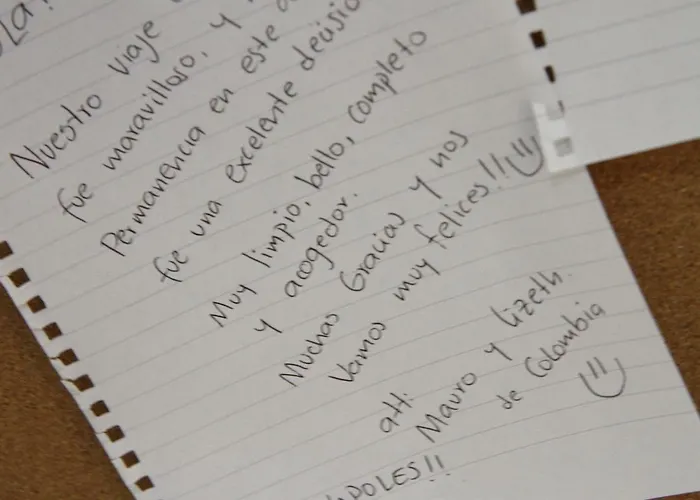 Nuestro Viaje
fue maravilloso, y
Permanencia en este
fue una excelente decisió
Muy limpio, bello, completo
y acogedor.
Muchas Gracias y nos
Vamos muy felices!!
att:
Mauro y Lizeth.
de Colombia
POLES!!